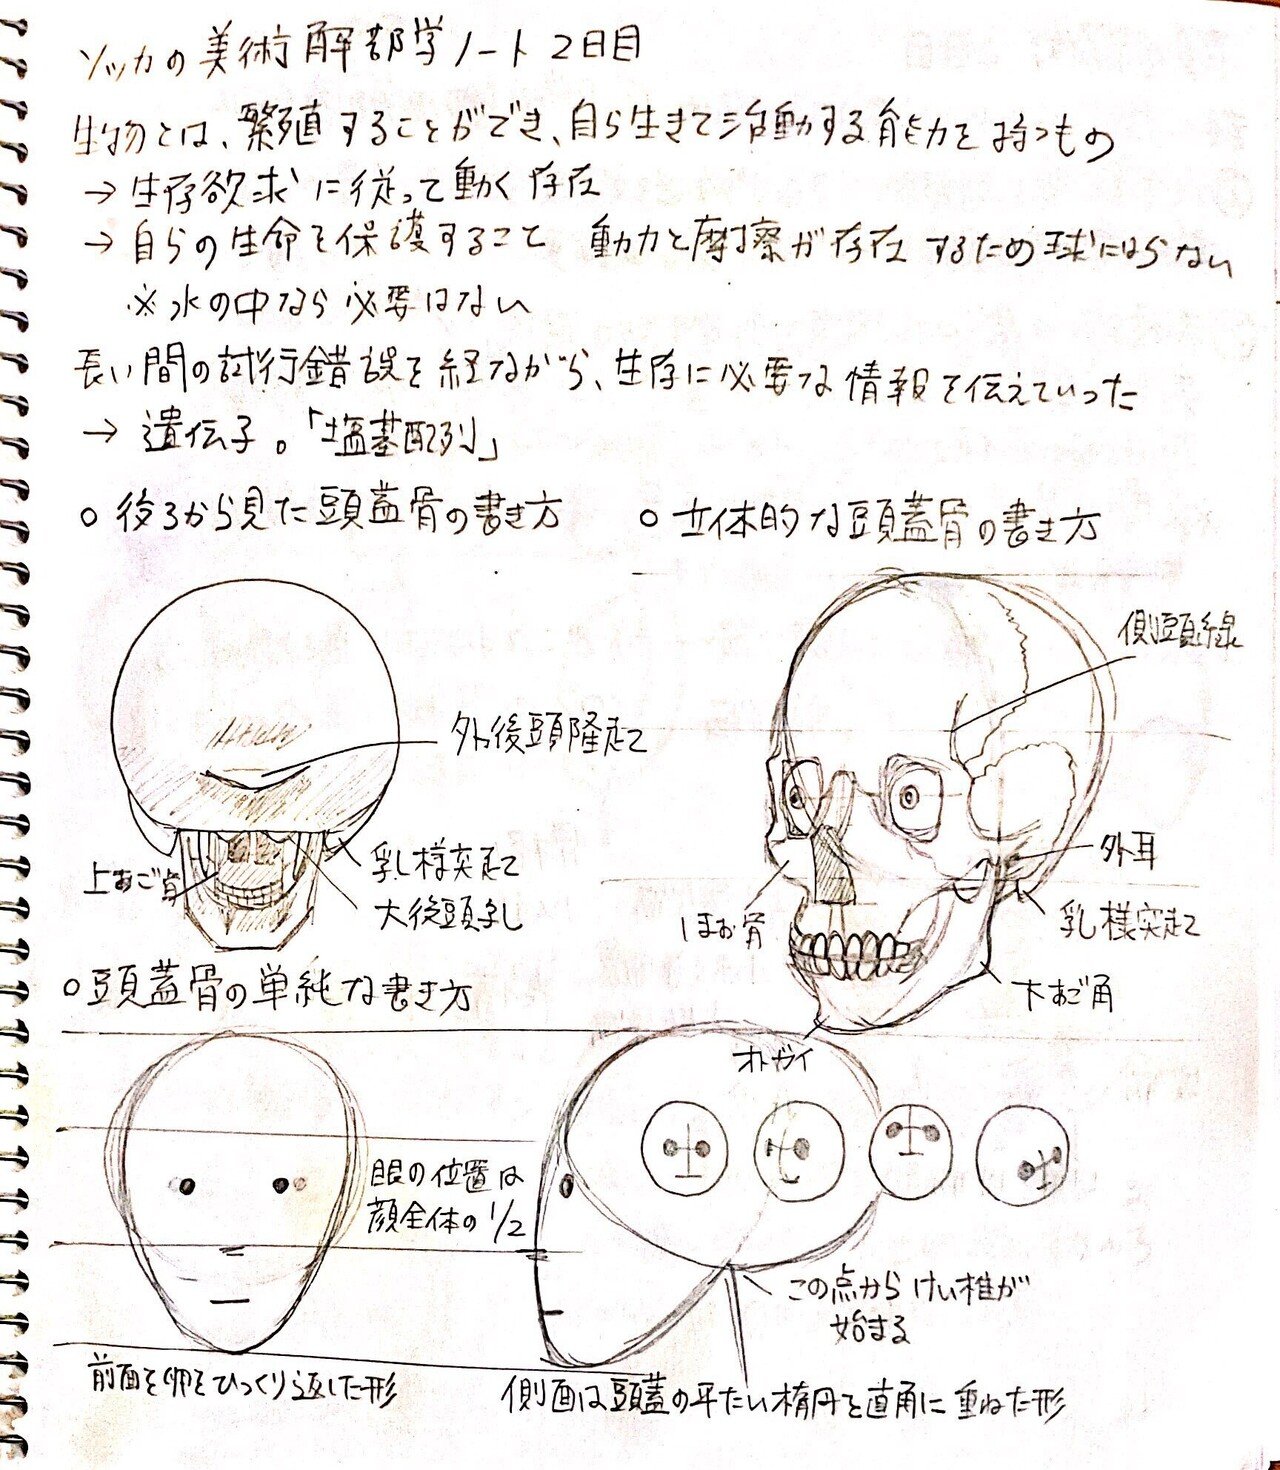 ソッカの美術解部学ノート2日目
生物とは、繁殖することができ、自ら生きて活動する能力を持つもの
→ 生存欲求に従って動く存在
→ 自らの生命を保護すること 動力と摩擦が存在するため球にはらない
※水の中なら必要はない
長い間の試行錯誤を経ながら、生存に必要な情報を伝えていった
→ 遺伝子。「塩基配列」
○ 後ろから見た頭蓋骨の書き方
○ 立体的な頭蓋骨の書き方
側頭線
外後頭隆起
上あご骨
乳様突起
大後頭乳
外耳
ほお骨
乳様突起
下あご角
オトガイ
○頭蓋骨の単純な書き方
眼の位置は
顔全体の1/2
この点からけい椎が
始まる
前面を卵をひっくり返した形
側面は頭蓋の平たい楕円を直角に重ねた形